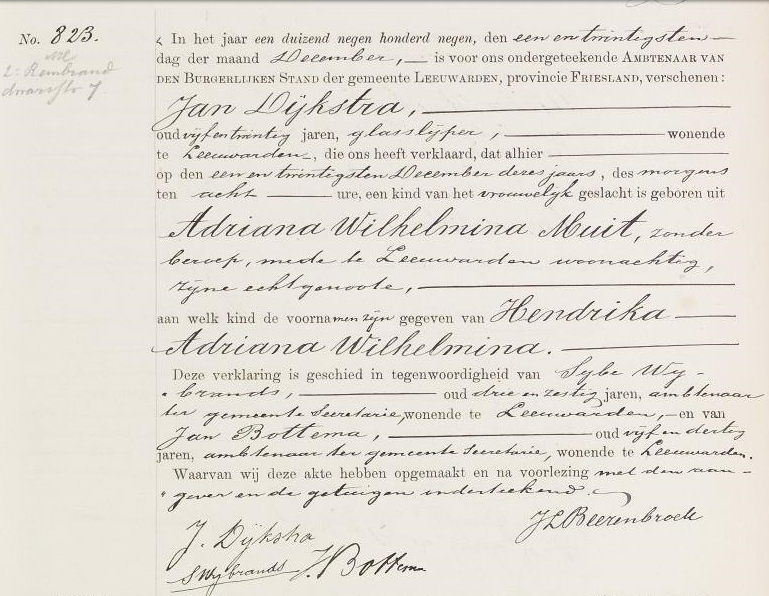 No. 823.
2e Rembrand
dwarsstr 7
In het jaar een duizend negen honderd negen, den een en twintigsten
dag der maand December, is voor ons ondergeteekende Ambtenaar van
den Burgerlijken Stand der gemeente Leeuwarden, provincie Friesland, verschenen:
Jan Dijkstra,
oud vijf en twintig jaren, glasslijper, wonende
te Leeuwarden, die ons heeft verklaard, dat alhier
op den een en twintigsten December dezes jaars, des morgens
ten acht ure, een kind van het vrouwelijk geslacht is geboren uit
Adriana Wilhelmina Muit, zonder
beroep, mede te Leeuwarden woonachtig,
zijne echtgenoote,
aan welk kind de voornamen zijn gegeven van Hendrika
Adriana Wilhelmina.
Deze verklaring is geschied in tegenwoordigheid van Sybe Wy-
brands, oud drie en zestig jaren, ambtenaar
ter gemeente Secretarie, wonende te Leeuwarden, en van
Jan Bottema, oud vijf en dertig
jaren, ambtenaar ter gemeente secretarie, wonende te Leeuwarden.
Waarvan wij deze akte hebben opgemaakt en na voorlezing met den aan-
gever en de getuigen onderteekend.
J L Beerenbrock
J. Dijkstra
S Wybrands J. Bottema